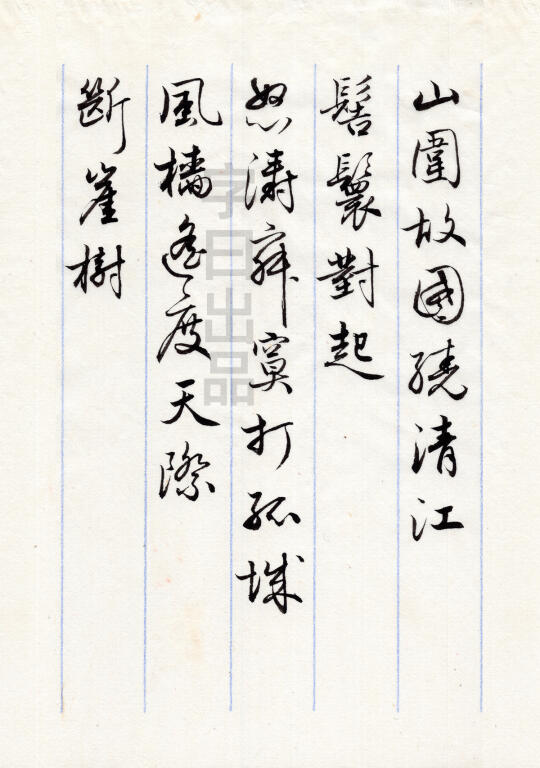 山圍故國繞清江
髻鬟對起
怒濤寂寞打孤城
風檣遙度天際
斷崖樹
字曰出品